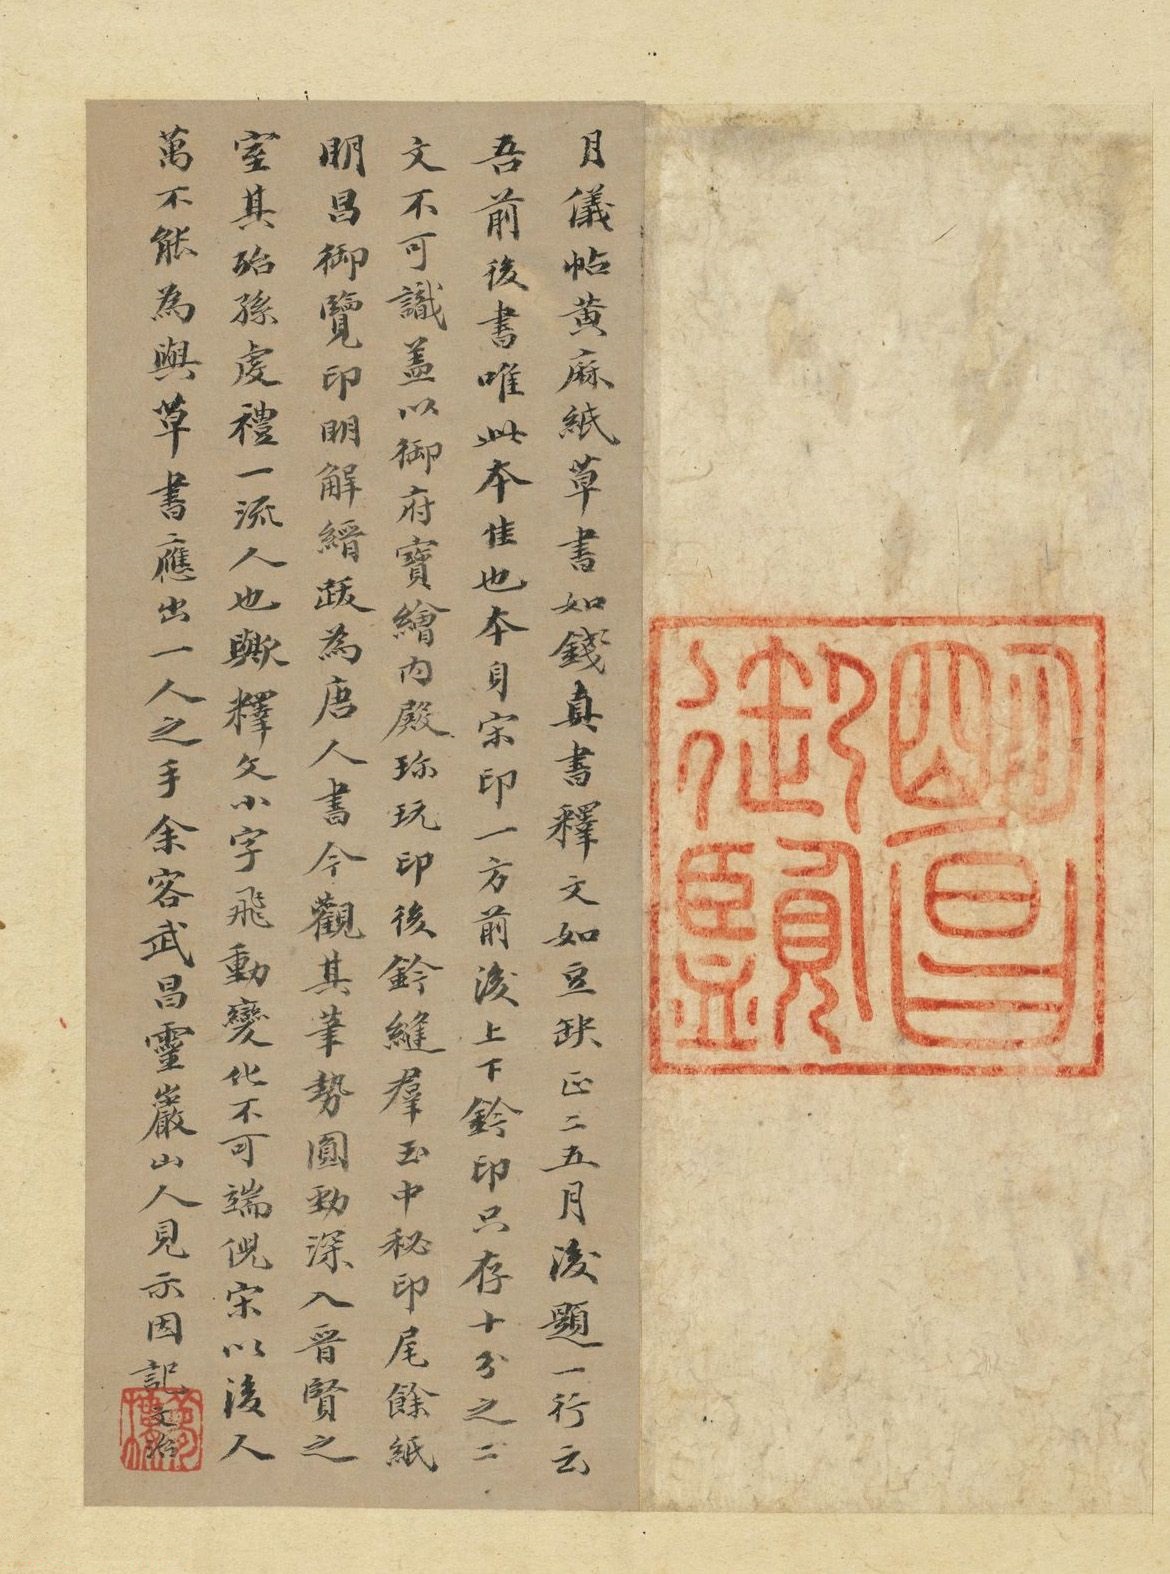 明昌
御覽
月儀帖黃麻紙草書如錢真書釋文如豆缺正二五月後題一行云
吾前後書唯此本佳也本身宋印一方前後上下鈐印只存十分之二
文不可識蓋以御府寶繪內殿珎玩印後鈐縫羣玉中秘印尾餘紙
明昌御覽印明解縉跋為唐人書今觀其筆勢圓勁深入晉賢之
室其殆孫虔禮一流人也歟釋文小字飛動變化不可端倪宋以後人
萬不能為與草書應出一人之手余客武昌靈巖山人見示因記文治